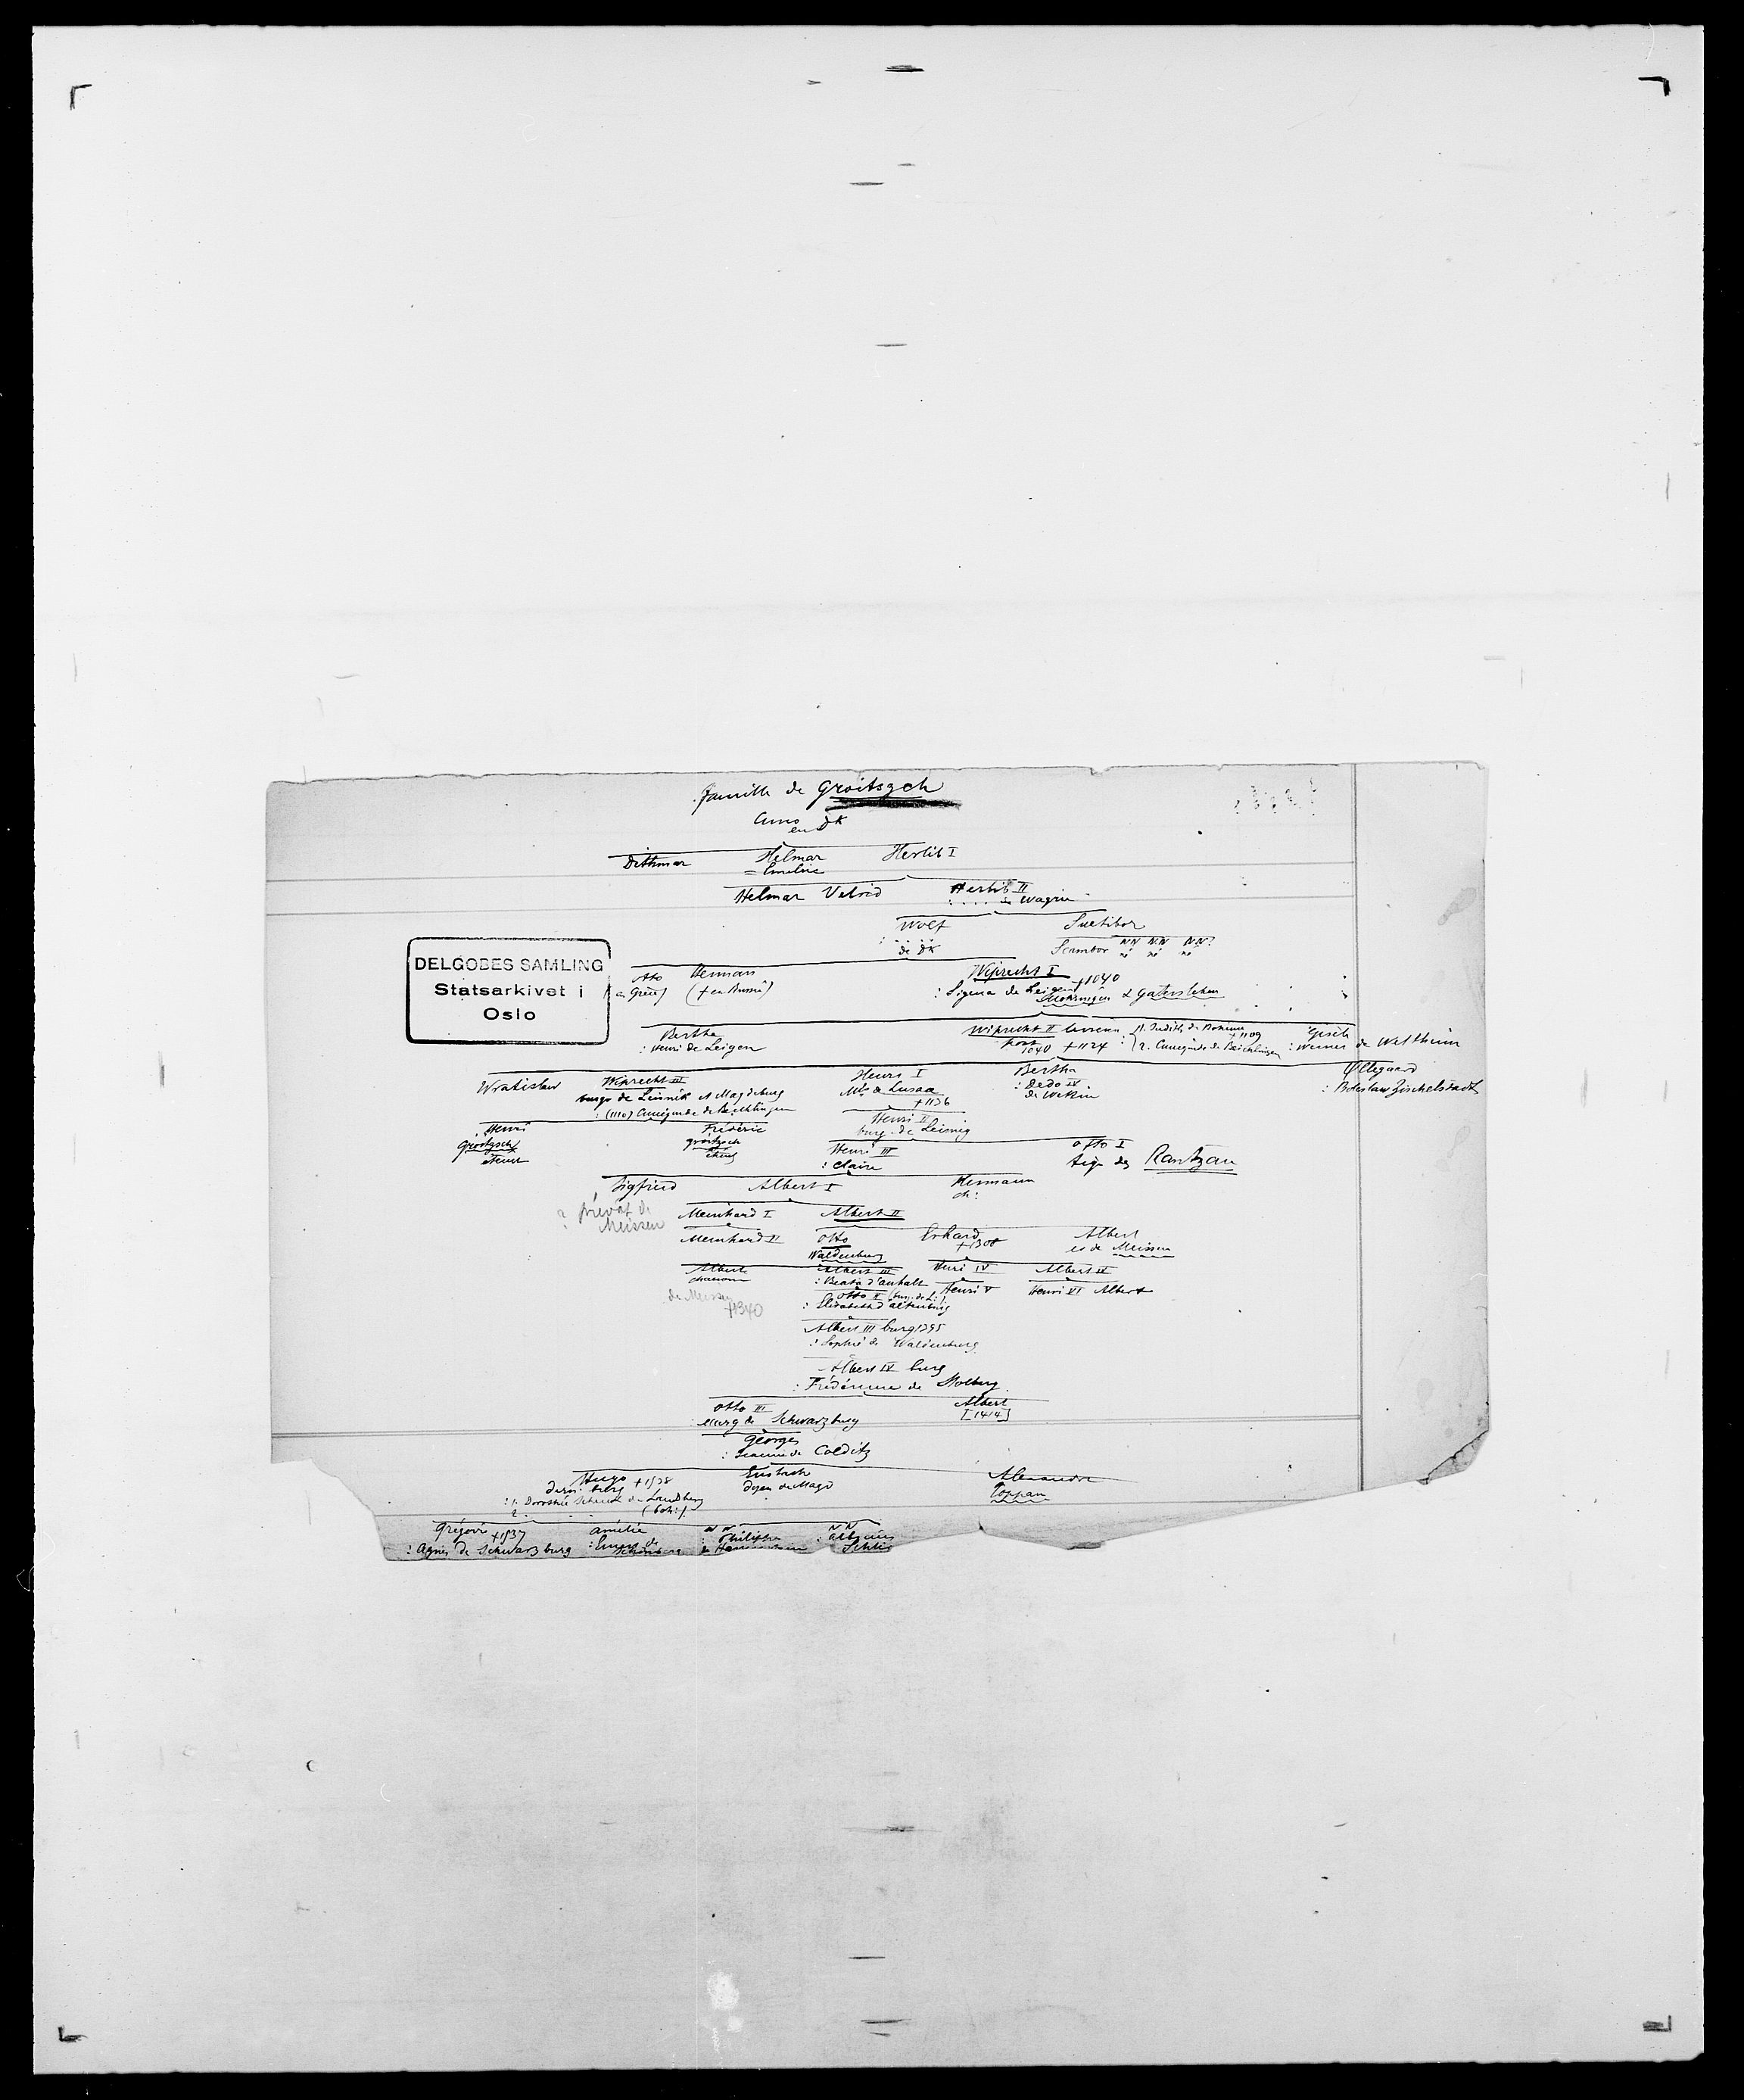 Famille de Groitszch
en DK
Dithmar Helmar Herlib I
= Emelie
Helmar Velrid Herlib II
. . . . Wagrie
Wolf Suetibor
de DK Scambor NN NN NN?
Otto Herman Wiprecht I +1040
en Grèce (+ en Russie) : Sigena de Leigen & Gatersleben
DELGOBES SAMLING
Statsarkivet i
Oslo
Bertha Wiprecht II 1. Judith de Boheme +1109 Gisela
: Henri de Leigen 1040 +1124 2. Cunegonde de Beichlingen : Werner de Weltheim
Wratislav Wiprecht III Henri I Bertha Ollegaard
burgr de Leisnik et Magdeburg Mis de Lusace : Dedo IV : Boleslaw Zischelstadt
: (1110) Cunégonde de Beichlingen +1136 de Wettin
Henri Frédéric Henri II
Groitzsch groitzsch burg. de Leisnig
éteint Henri III Otto I
: Claire tige des Rantzau
Sigfried Albert I Hermann
? prévôt de Meinhard I Albert II ch:
Meissen
Meinhard II Otto Erhard Albert
Waldenburg +1308 ev de Meissen
Albert Albert III Henri IV Albert IV
chanoine : Beata d'anhalt Henri V Henri VI Albert
de Meissen Otto II (burg. de L:)
+1340 : Elisabeth d'altenburg
Albert III burg 1395
: Sophie de Waldenburg
Albert IV burg
: Frédérique de Stolberg
Otto III Albert
: Marg de Schwarzburg [1414]
Georges
: de Colditz
Hugo +1538 Eustach Alexandre
dern. burg doyen de Magd Toppau
: 1. Dorothée Schenk de Landberg
2. . . . (boh:)
Grégoire +1537 Amélie NN NN
: Agnes de Schwarzburg : de Schönberg : Philippe : Albinus
Schlic